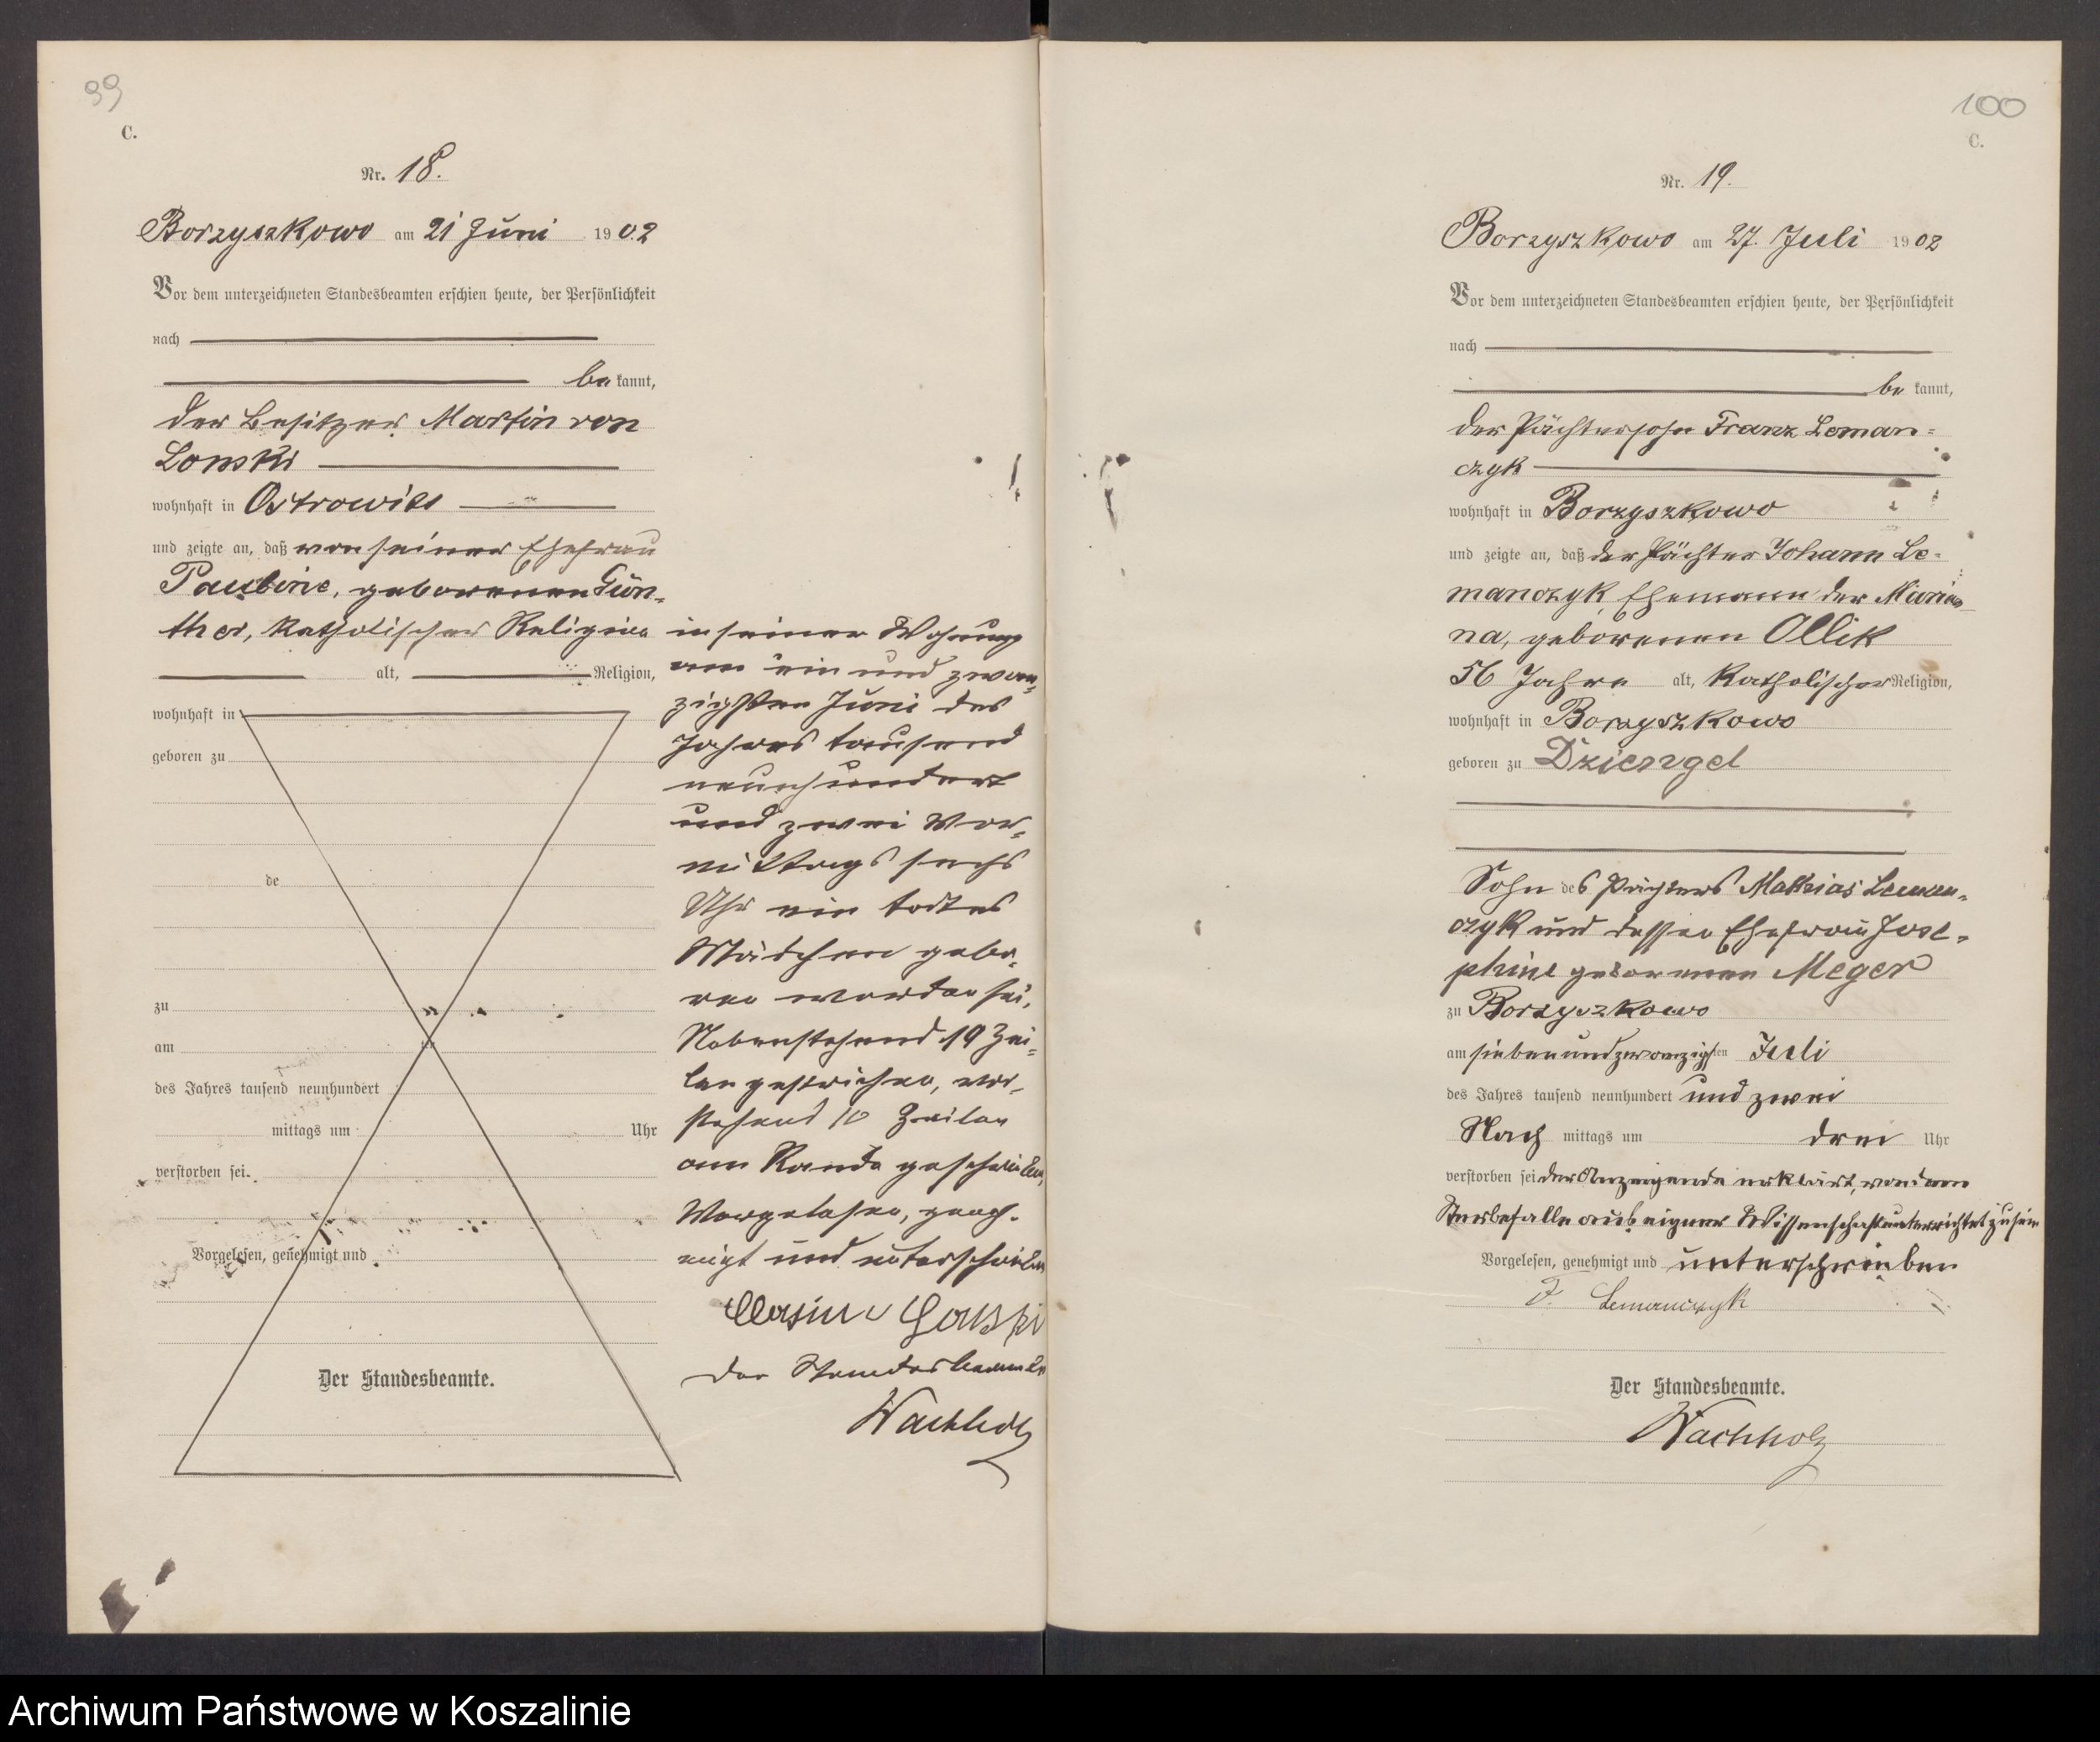 99
C.
Nr. 18.
Borzyszkowo am 21 Juni 1902
Vor dem unterzeichneten Standesbeamten erschien heute, der Persönlichkeit
nach
bekannt,
der Besitzer Martin von
Lonski
wohnhaft in Ostrowite
und zeigte an, daß von seiner Ehefrau
Pauline, geborenen Gün-
ther, katholischer Religion
alt, Religion,
wohnhaft in
geboren zu
de
zu
am
des Jahres tausend neunhundert
mittags um Uhr
verstorben sei.
Vorgelesen, genehmigt und
Der Standesbeamte.
in seiner Wohnung
am ein und zwan-
zigsten Juni des
Jahres tausend
neunhundert
und zwei Vor-
mittags sechs
Uhr ein todtes
Mädchen gebo-
ren worden sei.
Nebenstehend 19 Zei-
len gestrichen, vor-
stehend 10 Zeilen
am Rande geschrieben,
Vorgelesen, geneh-
migt und unterschrieben
Lonski
Der Standesbeamte
Wachholz
100
C.
Nr. 19.
Borzyszkowo am 27. Juli 1902
Vor dem unterzeichneten Standesbeamten erschien heute, der Persönlichkeit
nach
bekannt,
der Pächtersohn Franz Leman-
czyk
wohnhaft in Borzyszkowo
und zeigte an, daß der Pächter Johann Le-
manczyk, Ehemann der Marian-
na, geborenen Ollik
56 Jahre alt, katholischer Religion,
wohnhaft in Borzyszkowo
geboren zu Dziengel
Sohn des Pächters Mathias Leman-
czyk und dessen Ehefrau Jose-
phine geborenen Meger
zu Borzyszkowo
am siebenundzwanzigsten Juli
des Jahres tausend neunhundert und zwei
Nachmittags um drei Uhr
verstorben sei der Anzeigende erklärt, von dem
Sterbefalle aus eigner Wissenschaft unterrichtet zu sein
Vorgelesen, genehmigt und unterschrieben
F. Lemanczyk
Der Standesbeamte.
Wachholz
Archiwum Państwowe w Koszalinie